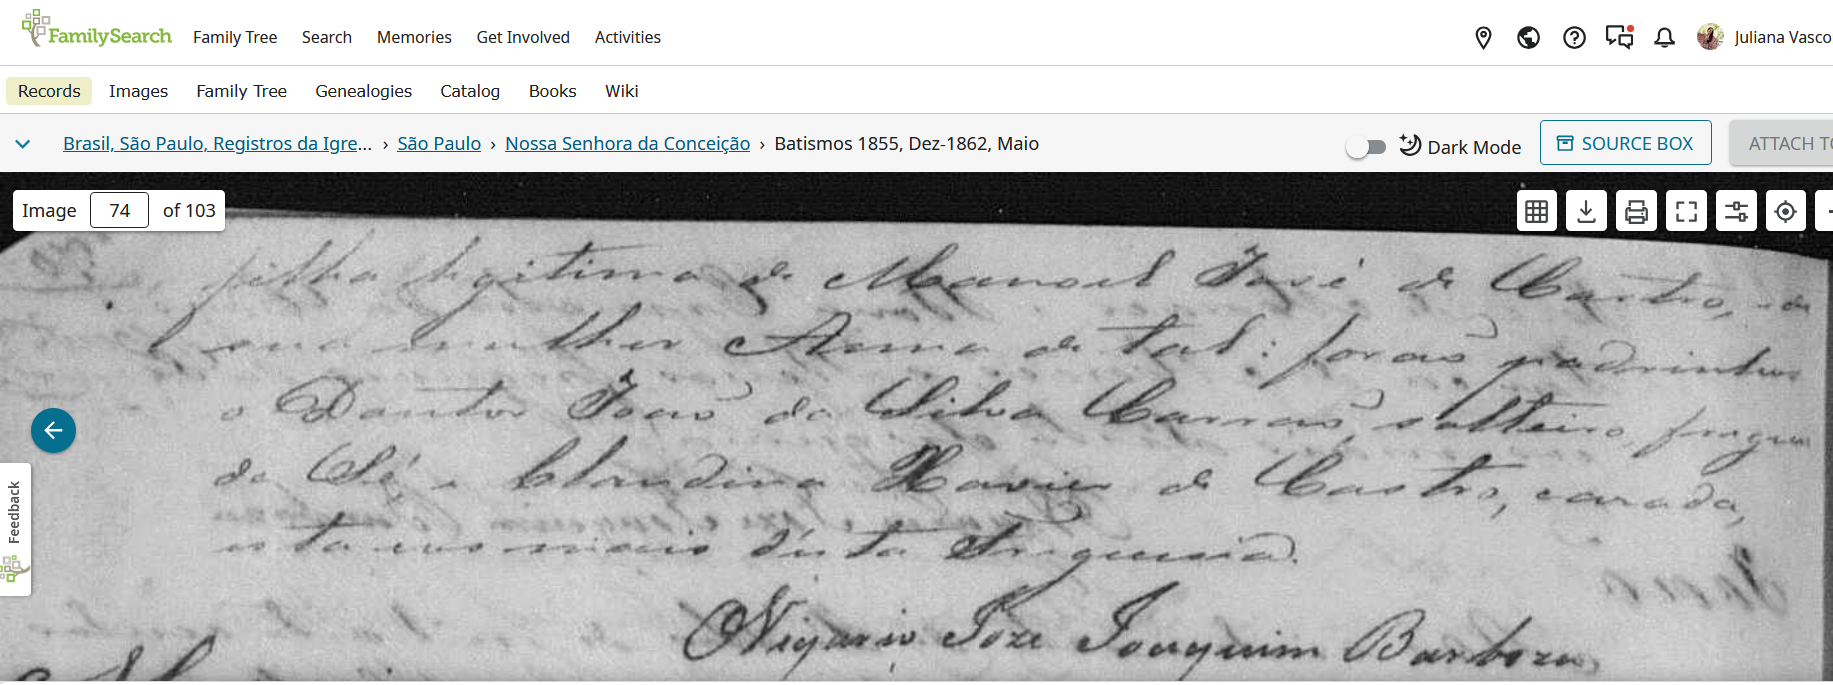 FamilySearch Family Tree Search Memories Get Involved Activities Juliana Vasco
Records Images Family Tree Genealogies Catalog Books Wiki
Brasil, São Paulo, Registros da Igre... › São Paulo › Nossa Senhora da Conceição › Batismos 1855, Dez-1862, Maio Dark Mode SOURCE BOX ATTACH TO
Image 74 of 103
filha legitima de Manoel José de Castro, e de
sua mulher Anna de tal: forão padrinhos
o Doutor João da Silva Carrão, solteiro, fregues
da Sé, e Claudina Xavier de Castro, casada,
e os mais desta Freguesia.
O Vigario Joze Joaquim Barboza
Feedback